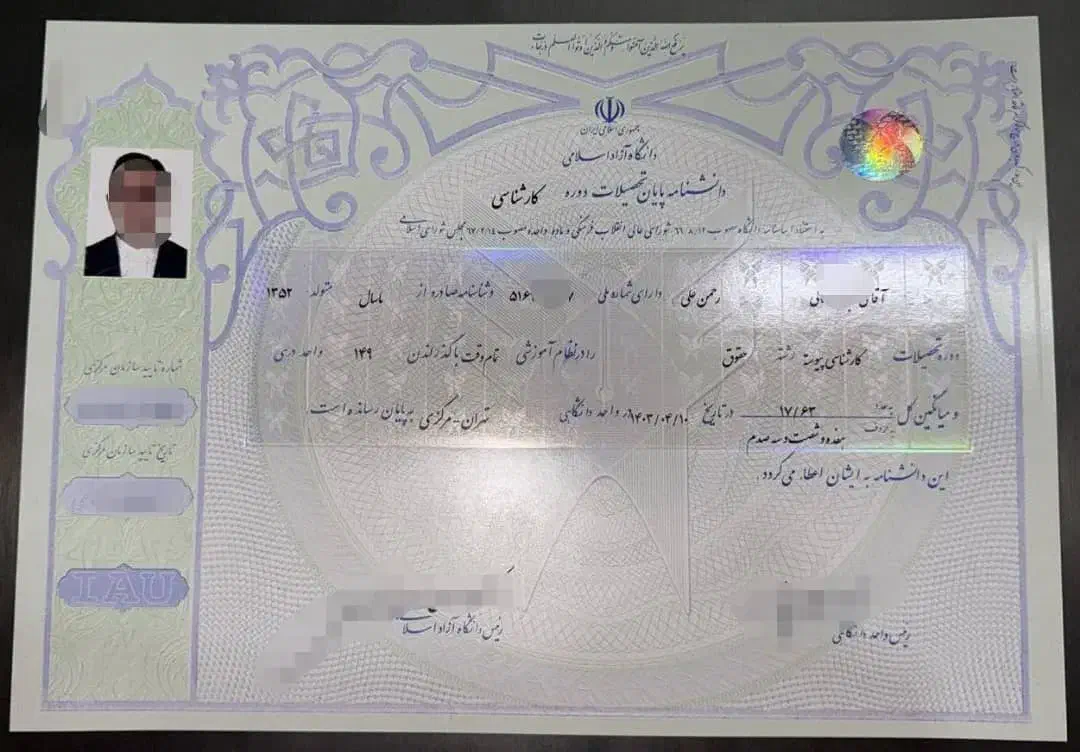 یرفع الله الذین آمنوا منکم والذین اوتوا العلم درجات
جمهوری اسلامی ایران
دانشگاه آزاد اسلامی
دانشنامه پایان تحصیلات دوره کارشناسی
به استناد اساسنامه دانشگاه مصوب ۶۶/۸/۱۲ شورای عالی انقلاب فرهنگی و ماده واحده مصوب ۶۷/۲/۱۴ مجلس شورای اسلامی
آقای رحمن علی دارای شماره ملی ۵۱۶ ۷ و شناسنامه صادره از ماسال متولد ۱۳۵۲
دوره تحصیلات کارشناسی پیوسته رشته حقوق را در نظام آموزشی تمام وقت با گذراندن ۱۴۹ واحد درسی
و میانگین کل به عدد ۱۷/۶۳ در تاریخ ۱۴۰۳/۰۴/۱۰ در واحد دانشگاهی تهران - مرکزی به پایان رسانده است.
به حروف هفده و شصت و سه صدم
این دانشنامه به ایشان اعطاء می گردد.
رئیس واحد دانشگاهی
رئیس دانشگاه آزاد اسلامی
شماره تایید سازمان مرکزی
تاریخ تایید سازمان مرکزی
IAU